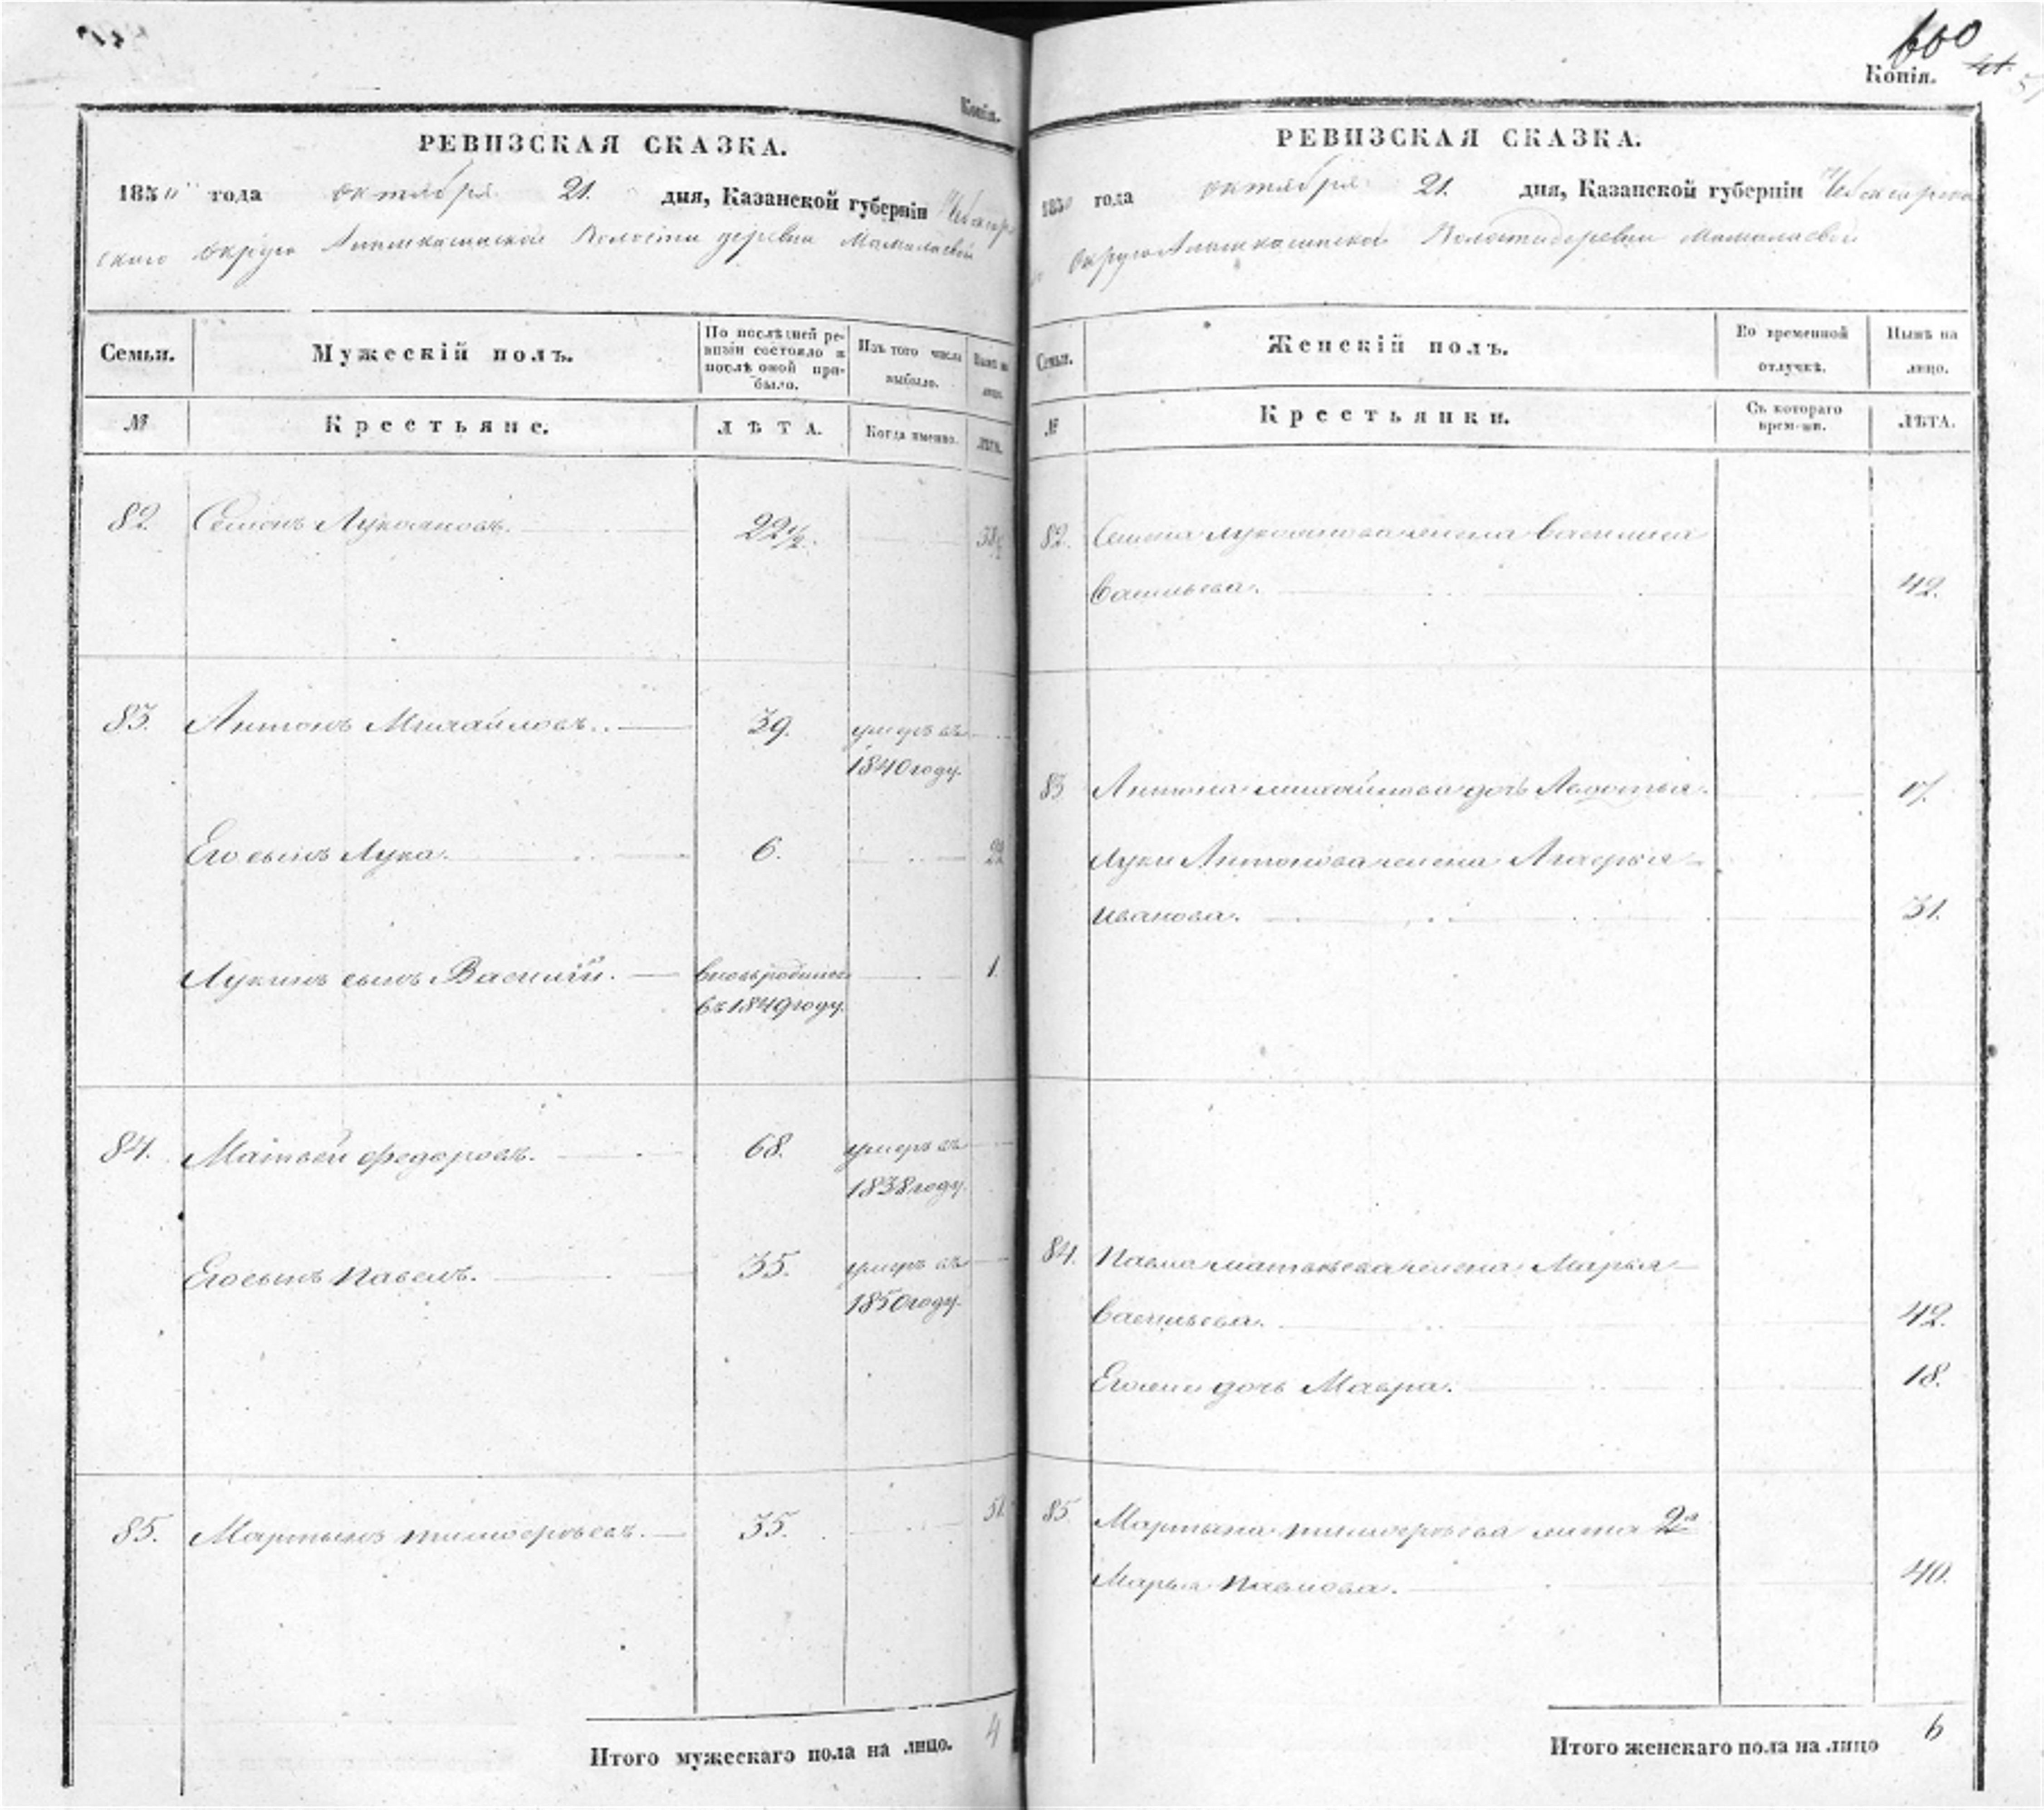 Копія.
РЕВИЗСКАЯ СКАЗКА.
1850 года октября 21. дня, Казанской губерніи Чебоксар
скаго округа волости деревни Мамалаевой
Семьи.
Мужескій полъ.
По послѣдней ре-
визіи состояло и
послѣ оной при-
было.
Изъ того числа
выбыло.
Нынѣ на
лицо.
№
Крестьяне.
ЛѢТА.
Когда именно.
ЛѢТА.
82. Семенъ Лукояновъ. 22½. 38½
83. Антонъ Михайловъ. 39. умеръ въ
1840 году.
Его сынъ Лука. 6. 22
Лукинъ сынъ Василій. вновьродился 1.
въ 1849 году.
84. Матвей Федоровъ. 68. умеръ въ
1838 году.
Его сынъ Павелъ. 35. умеръ въ
1850 году.
85. Мартынъ Тимофѣевъ. 35. 51.
Итого мужескаго пола на лицо. 4
600
Копія. 41.
РЕВИЗСКАЯ СКАЗКА.
1850 года октября 21. дня, Казанской губерніи Чебоксарска
округа волости деревни Мамалаевой
Семьи.
Женскій полъ.
Во временной
отлучкѣ.
Нынѣ на
лицо.
№
Крестьянки.
Съ котораго
времени.
ЛѢТА.
82. Семена Лукоянова жена Василиса
Васильева. 42.
83 Антона Михайлова дочь Авдотья. 17.
Луки Антонова жена
Иванова. 31.
84. Павла Матвѣева жена Марья
Васильева. 42.
Его дочь Мавра. 18.
85 Мартына Тимофѣева жена 2я
Марья Павлова. 40.
Итого женскаго пола на лицо 6